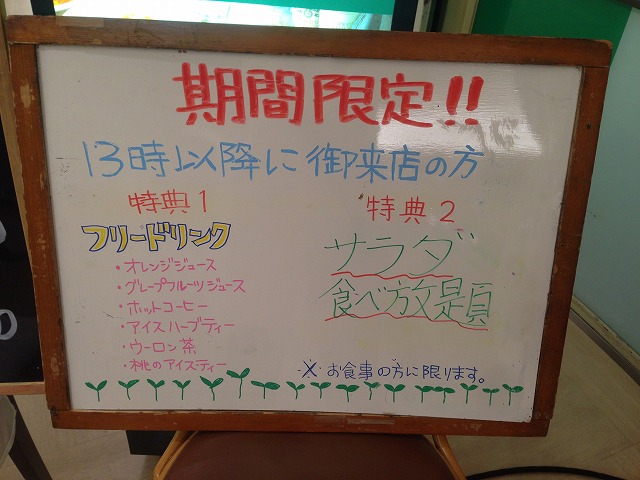 期間限定!!
13時以降に御来店の方
特典1
フリードリンク
・オレンジジュース
・グレープフルーツジュース
・ホットコーヒー
・アイスハーブティー
・ウーロン茶
・桃のアイスティー
特典2
サラダ
食べ放題
※お食事の方に限ります。